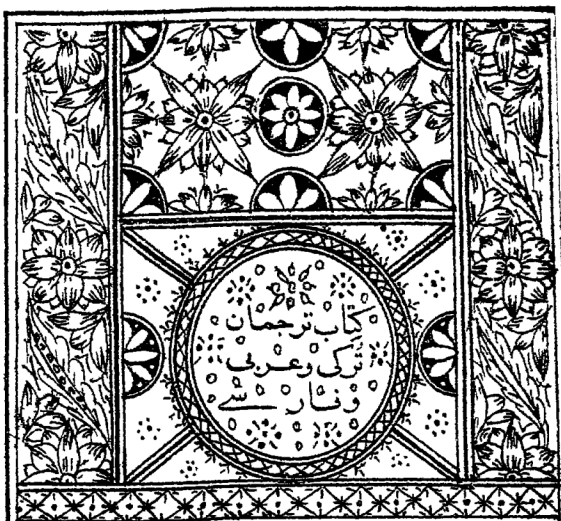 كتاب ترجمان
تركى وعربى
وفارسى